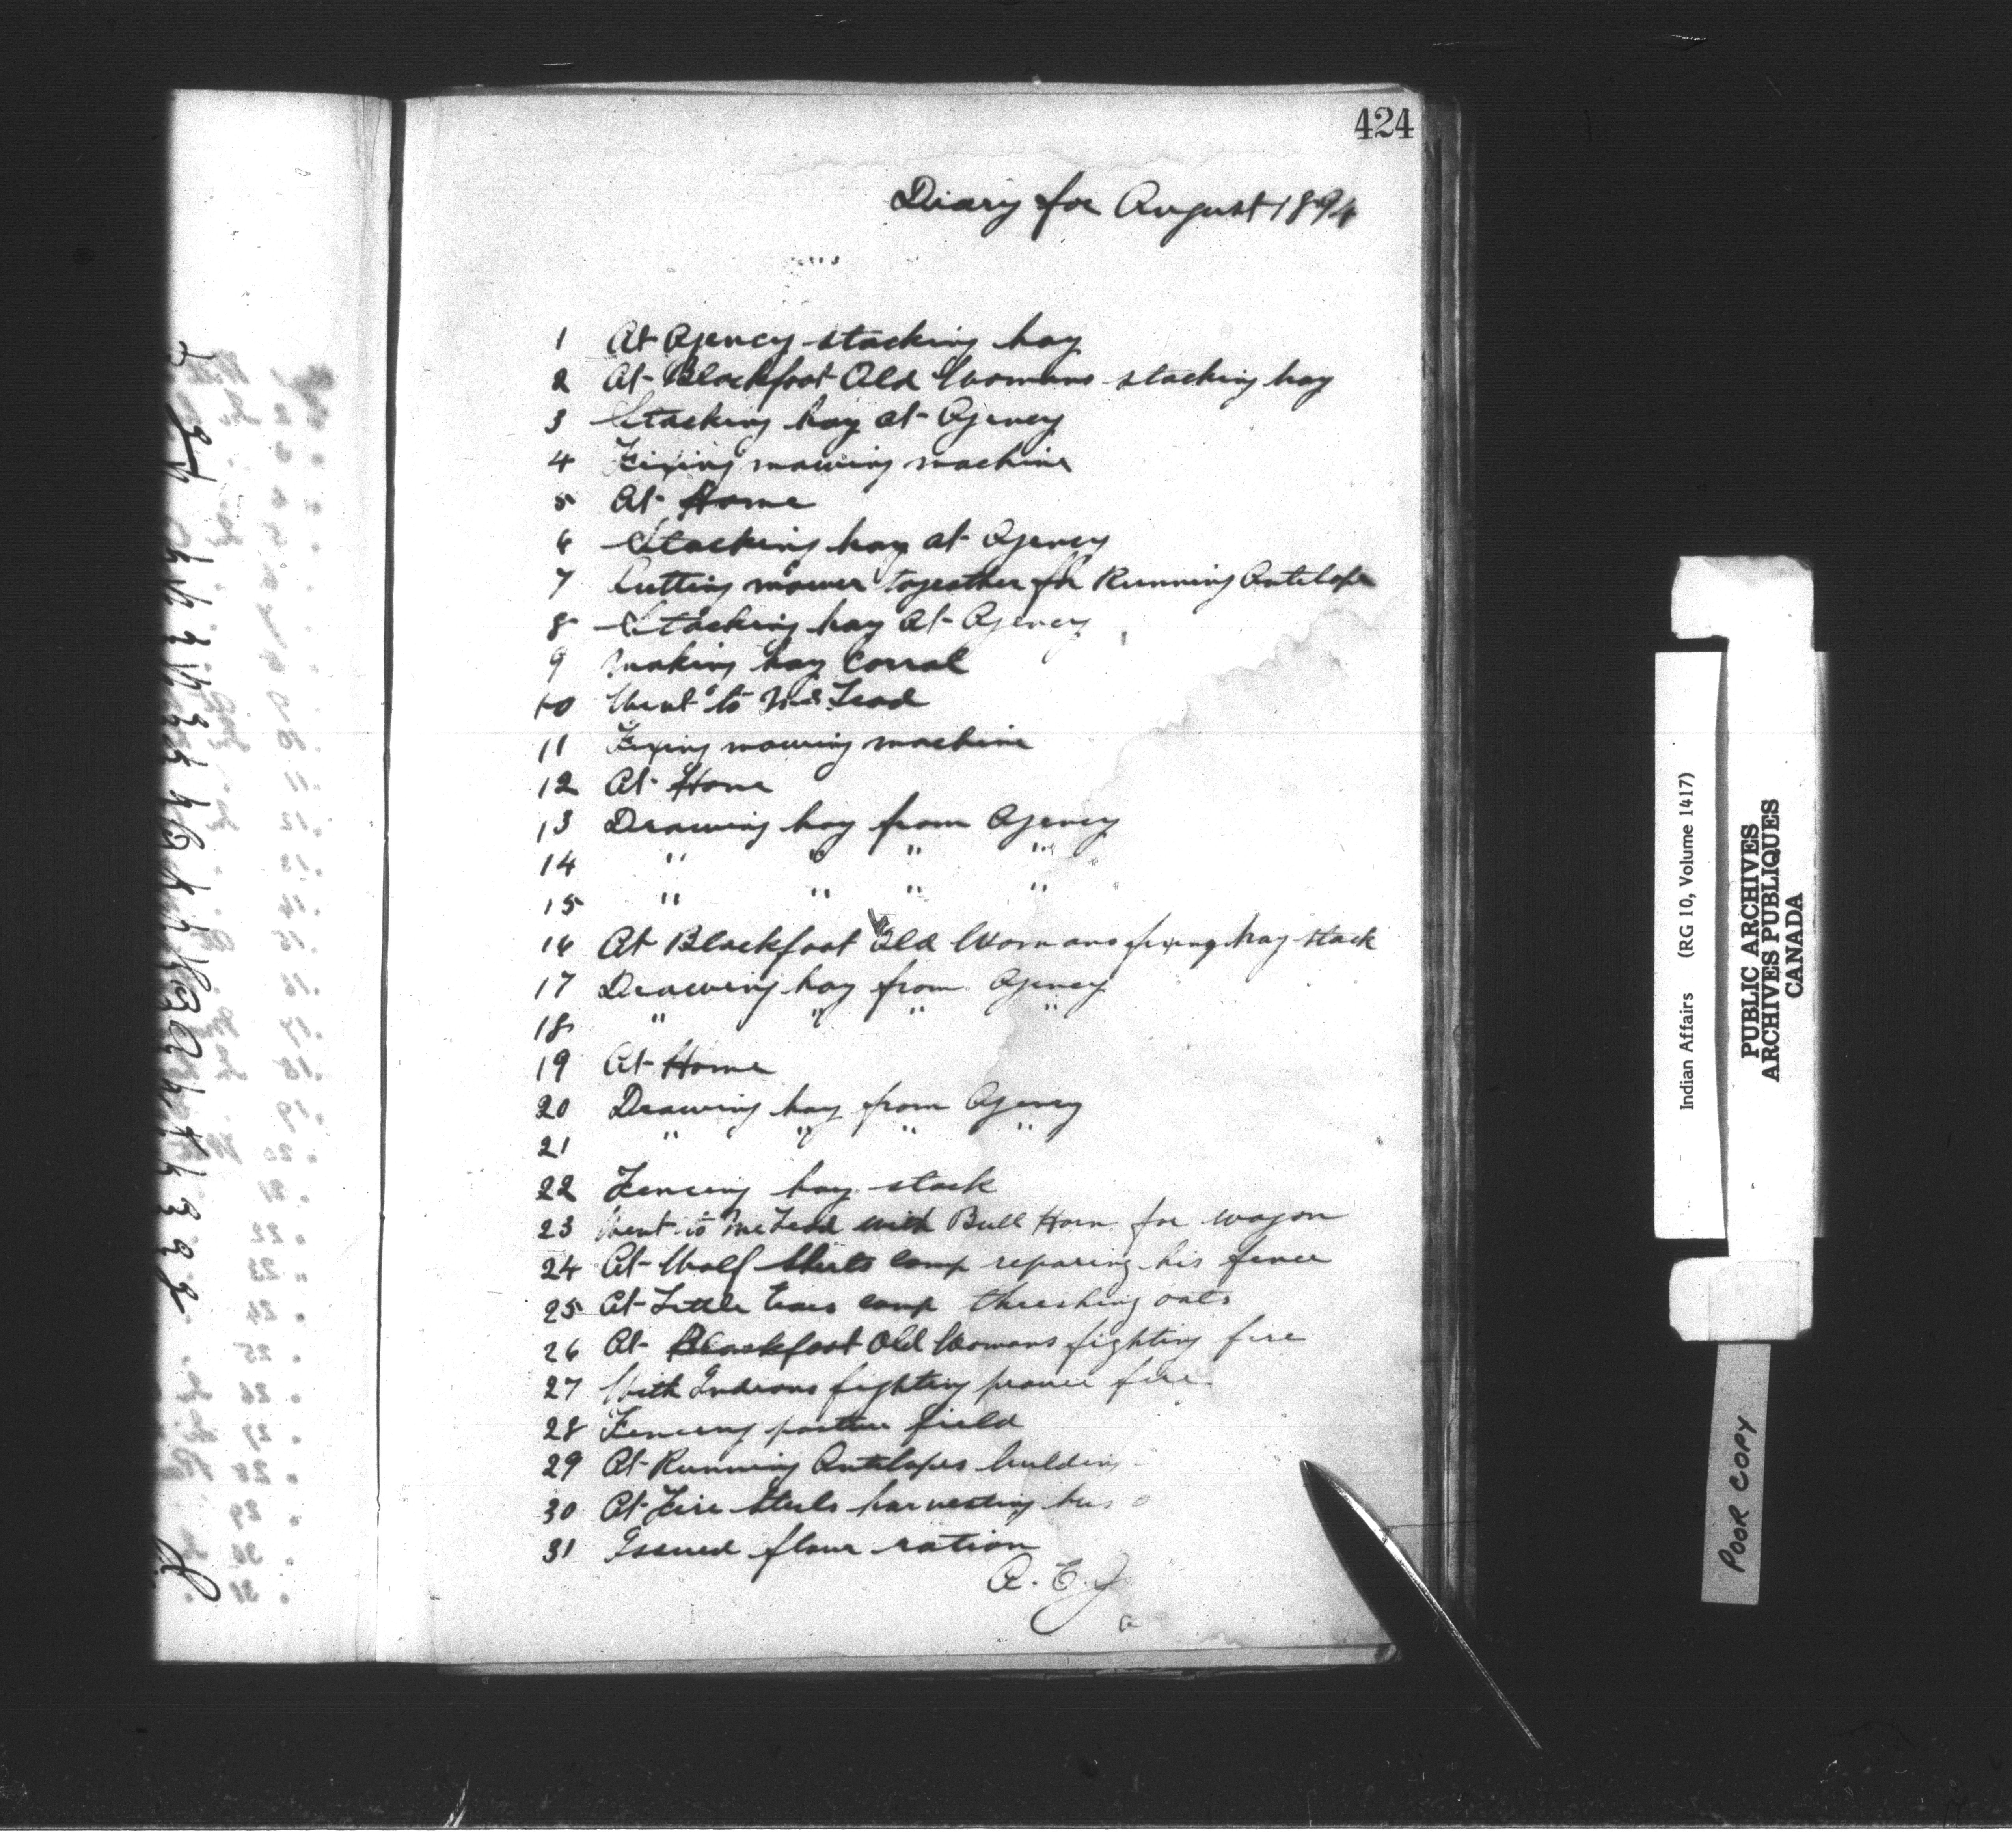 424
Diary for August 1894
1 At Agency stacking hay
2 At Blackfoot Old Womans stacking hay
3 Stacking hay at Agency
4 Fixing mowing machine
5 At Home
6 Stacking hay at Agency
7 Putting mower together for Running Antelope
8 Stacking hay At Agency
9 Making hay Corral
10 Went to McLeod
11 Fixing mowing machine
12 At Home
13 Drawing hay from Agency
14 " " " "
15 " " " "
16 At Blackfoot Old Womans fixing hay stack
17 Drawing hay from Agency
18 " " " "
19 At Home
20 Drawing hay from Agency
21 " " " "
22 Fencing hay stack
23 Went to McLeod with Bull Horn for wagon
24 At Wolf Shirts camp reparing his fence
25 At Little Ears camp threshing oats
26 At Blackfoot Old Womans fighting fire
27 With Indians fighting prairie fire
28 Fencing pasture field
29 At Running Antelopes building
30 At Fire Steels harvesting his
31 Issued flour ration
A. E. J
Indian Affairs (RG 10, Volume 1417)
PUBLIC ARCHIVES
ARCHIVES PUBLIQUES
CANADA
POOR COPY